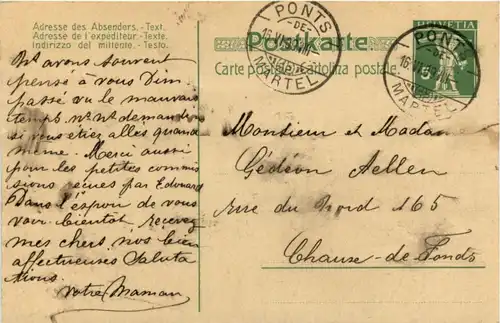 Adresse des Absenders. -Text.
Adresse de l'expéditeur. -Texte.
Indirizzo del mittente. -Testo.
Postkarte
Carte postale. Cartolina postale.
HELVETIA
PONTS
-DE-
MARTEL
PONTS
-DE-
MARTEL
avons souvent
pensé à vous Dim.
passé vu le mauvais
temps, demandons
si vous étiez alles quand
même. Merci aussi
pour les petites commis
sions reçues par Edouard
Dans l'espoir de vous
voir bientôt recevez
mes chers, nos bien
affectueuses Saluta
tions.
votre Maman
Monsieur et Madame
Gédéon Aellen
rue du Nord 165
Chaux-de-Fonds